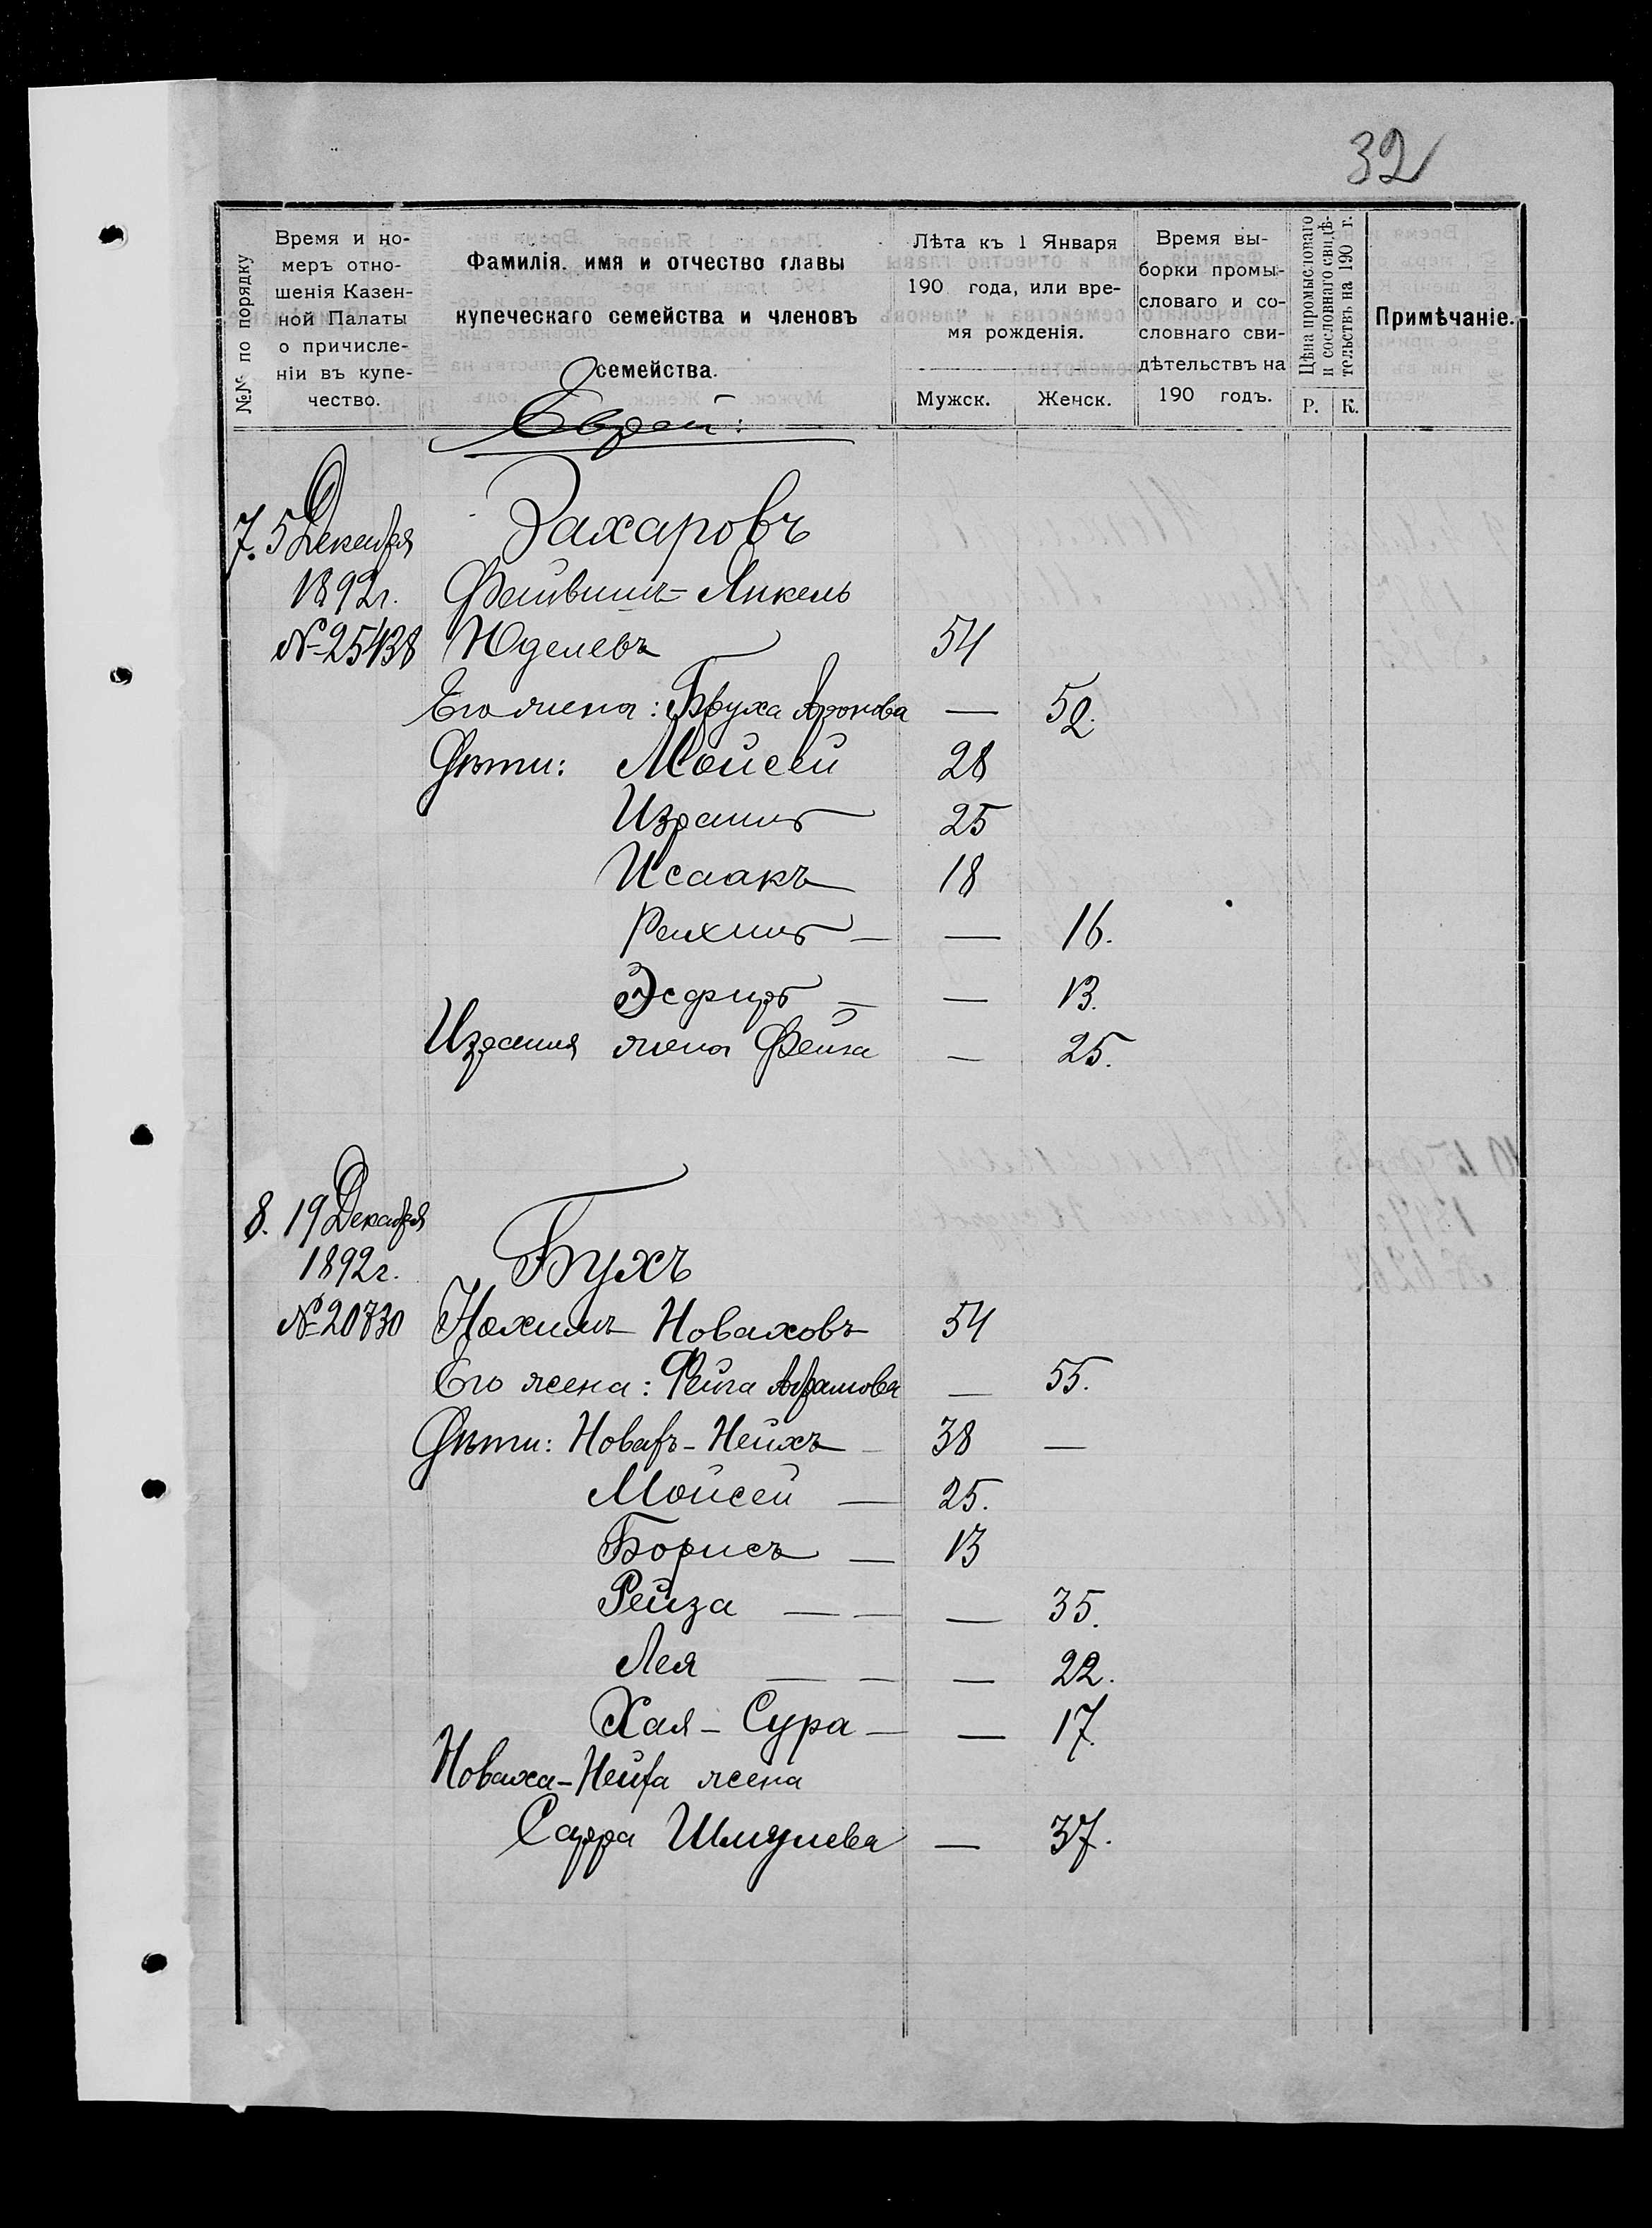 32
№№ по порядку
Время и но-
меръ отно-
шенія Казен-
ной Палаты
о причисле-
ніи въ купе-
чество.
Фамилія, имя и отчество главы
купеческаго семейства и членовъ
семейства.
Лѣта къ 1 Января
190 года, или вре-
мя рожденія.
Мужск. Женск.
Время вы-
борки промы-
словаго и со-
словнаго сви-
дѣтельствъ на
190 годъ.
Цѣна промысловаго
и сословнаго свидѣ-
тельствъ на 190 г.
Р. К.
Примѣчаніе.
Еврей:
7. 5 Декабря Захаровъ
1892г. Фейвишъ-Янкель
№25438 Юделевъ 54
Его жена: Бруха Аронова — 52.
Дѣти: Мойсей 28
Израиль 25
Исаакъ 18
Рейхиль — — 16.
Эсфирь — — 13.
Израиля жена Фейга — 25.
8. 19 Декабря
1892г. Бухъ
№20730 Нохимъ Новаховъ 54
Его жена: Фейга Абрамова — 55.
Дѣти: Новахъ-Нейхъ — 38 —
Мойсей — 25.
Борисъ — 13
Рейза — — — 35.
Лея — — — 22.
Хая-Сура — — 17.
Новаха-Нейха жена
Сарра Шмулева — 37.